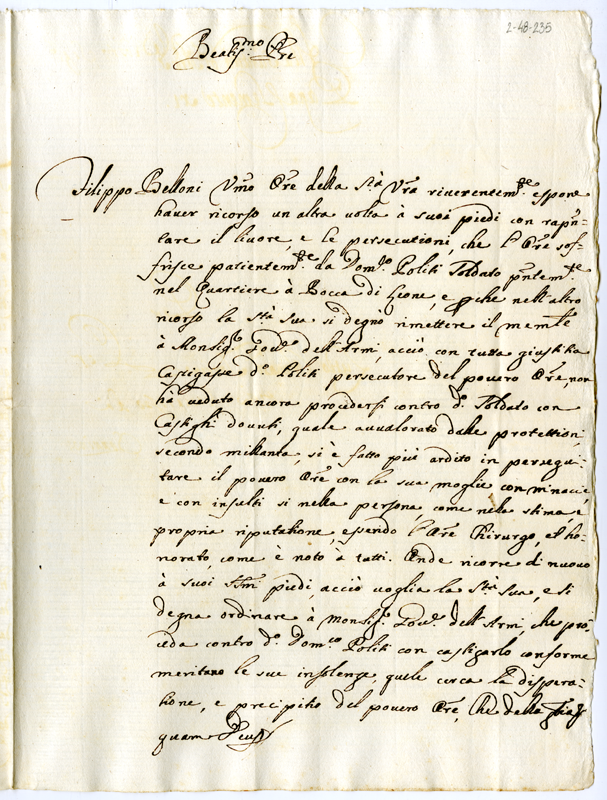 2-48-235
Beatis.mo Pre
Filippo Belloni Vmo Ore della Stà Vra riverentem.te espone
haver ricorso un altra volta à suoi piedi con rapñ-
tare il livore, e le persecutioni, che l'Ore sof-
frisce patientem.te da Dom.co Politi Soldato pñtem.te
nel Quartiere à Bocca di Leone, e perche nell'altro
ricorso la Stà Sua si degnò rimettere il memle
à Monsig.r Gov.r dell'Armi, acciò con tutta giustitia
castigasse d.o Politi persecutore del povero Ore, non
hà veduto ancora procedersi contro d.o Soldato con
Castighi dovuti, quale avvalorato dalle protettioni
secondo millanta, si è fatto più ardito in persegui-
tare il povero Ore con la sua moglie con minacie,
e con insulti si nella persona, come nella stima, e
propria riputatione, essendo l'Ore Chirurgo, et ho-
norato, come è noto à tutti. Onde ricorre di nuovo
à suoi Stmi piedi, acciò voglia la Stà Sua, e si
degna ordinare à Monsig.r Gov.r dell'Armi, che pro-
ceda contro d.o Dom.co Politi con castigarlo conforme
meritano le sue insolenze, quale cerca la dispera-
tione, e precipitio del povero Ore, Che della
quam Deus